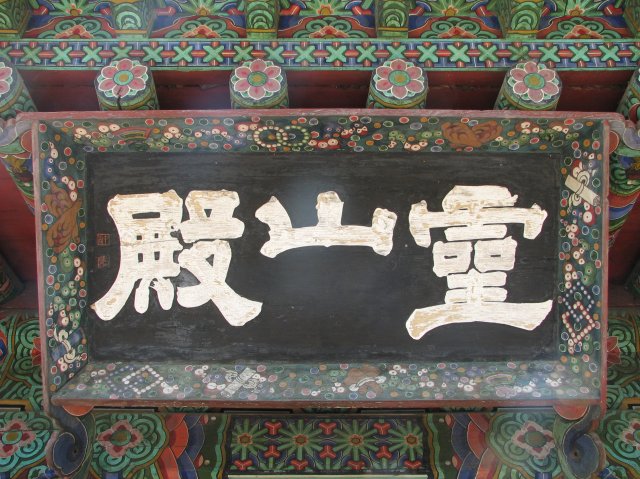 靈山殿